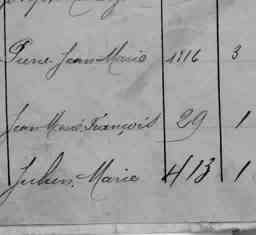 Pierre Jean Marie 1816 3
Jean Marie François 29 1
Julien Marie 413 1